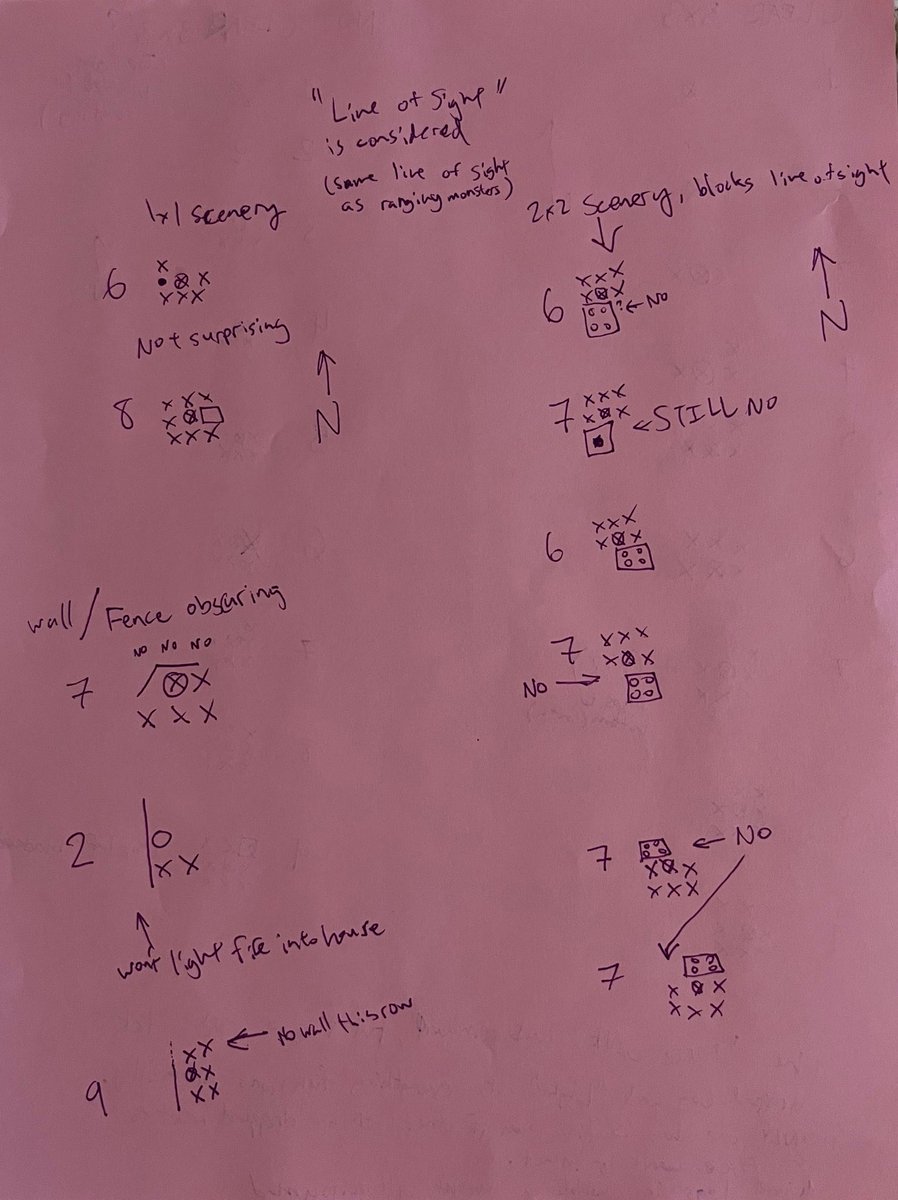 "Line of Sight"
is considered
(same line of sight
as ranging monsters)
1x1 scenery
6
x
x
xxx
Not surprising
8
x x x
x
x x x
N
wall/Fence obscuring
NO NO NO
7
x
x x x
2
x x
won't light fire into house
9
xx
x
xx
No wall this row
2x2 Scenery, blocks line of sight
6
x x x
x x
? ← NO
N
7
x x x
x x
← STILL NO
6
x x x
x x
7
x x x
x x
NO →
7
← NO
x x
x x x
7
x x
x x x